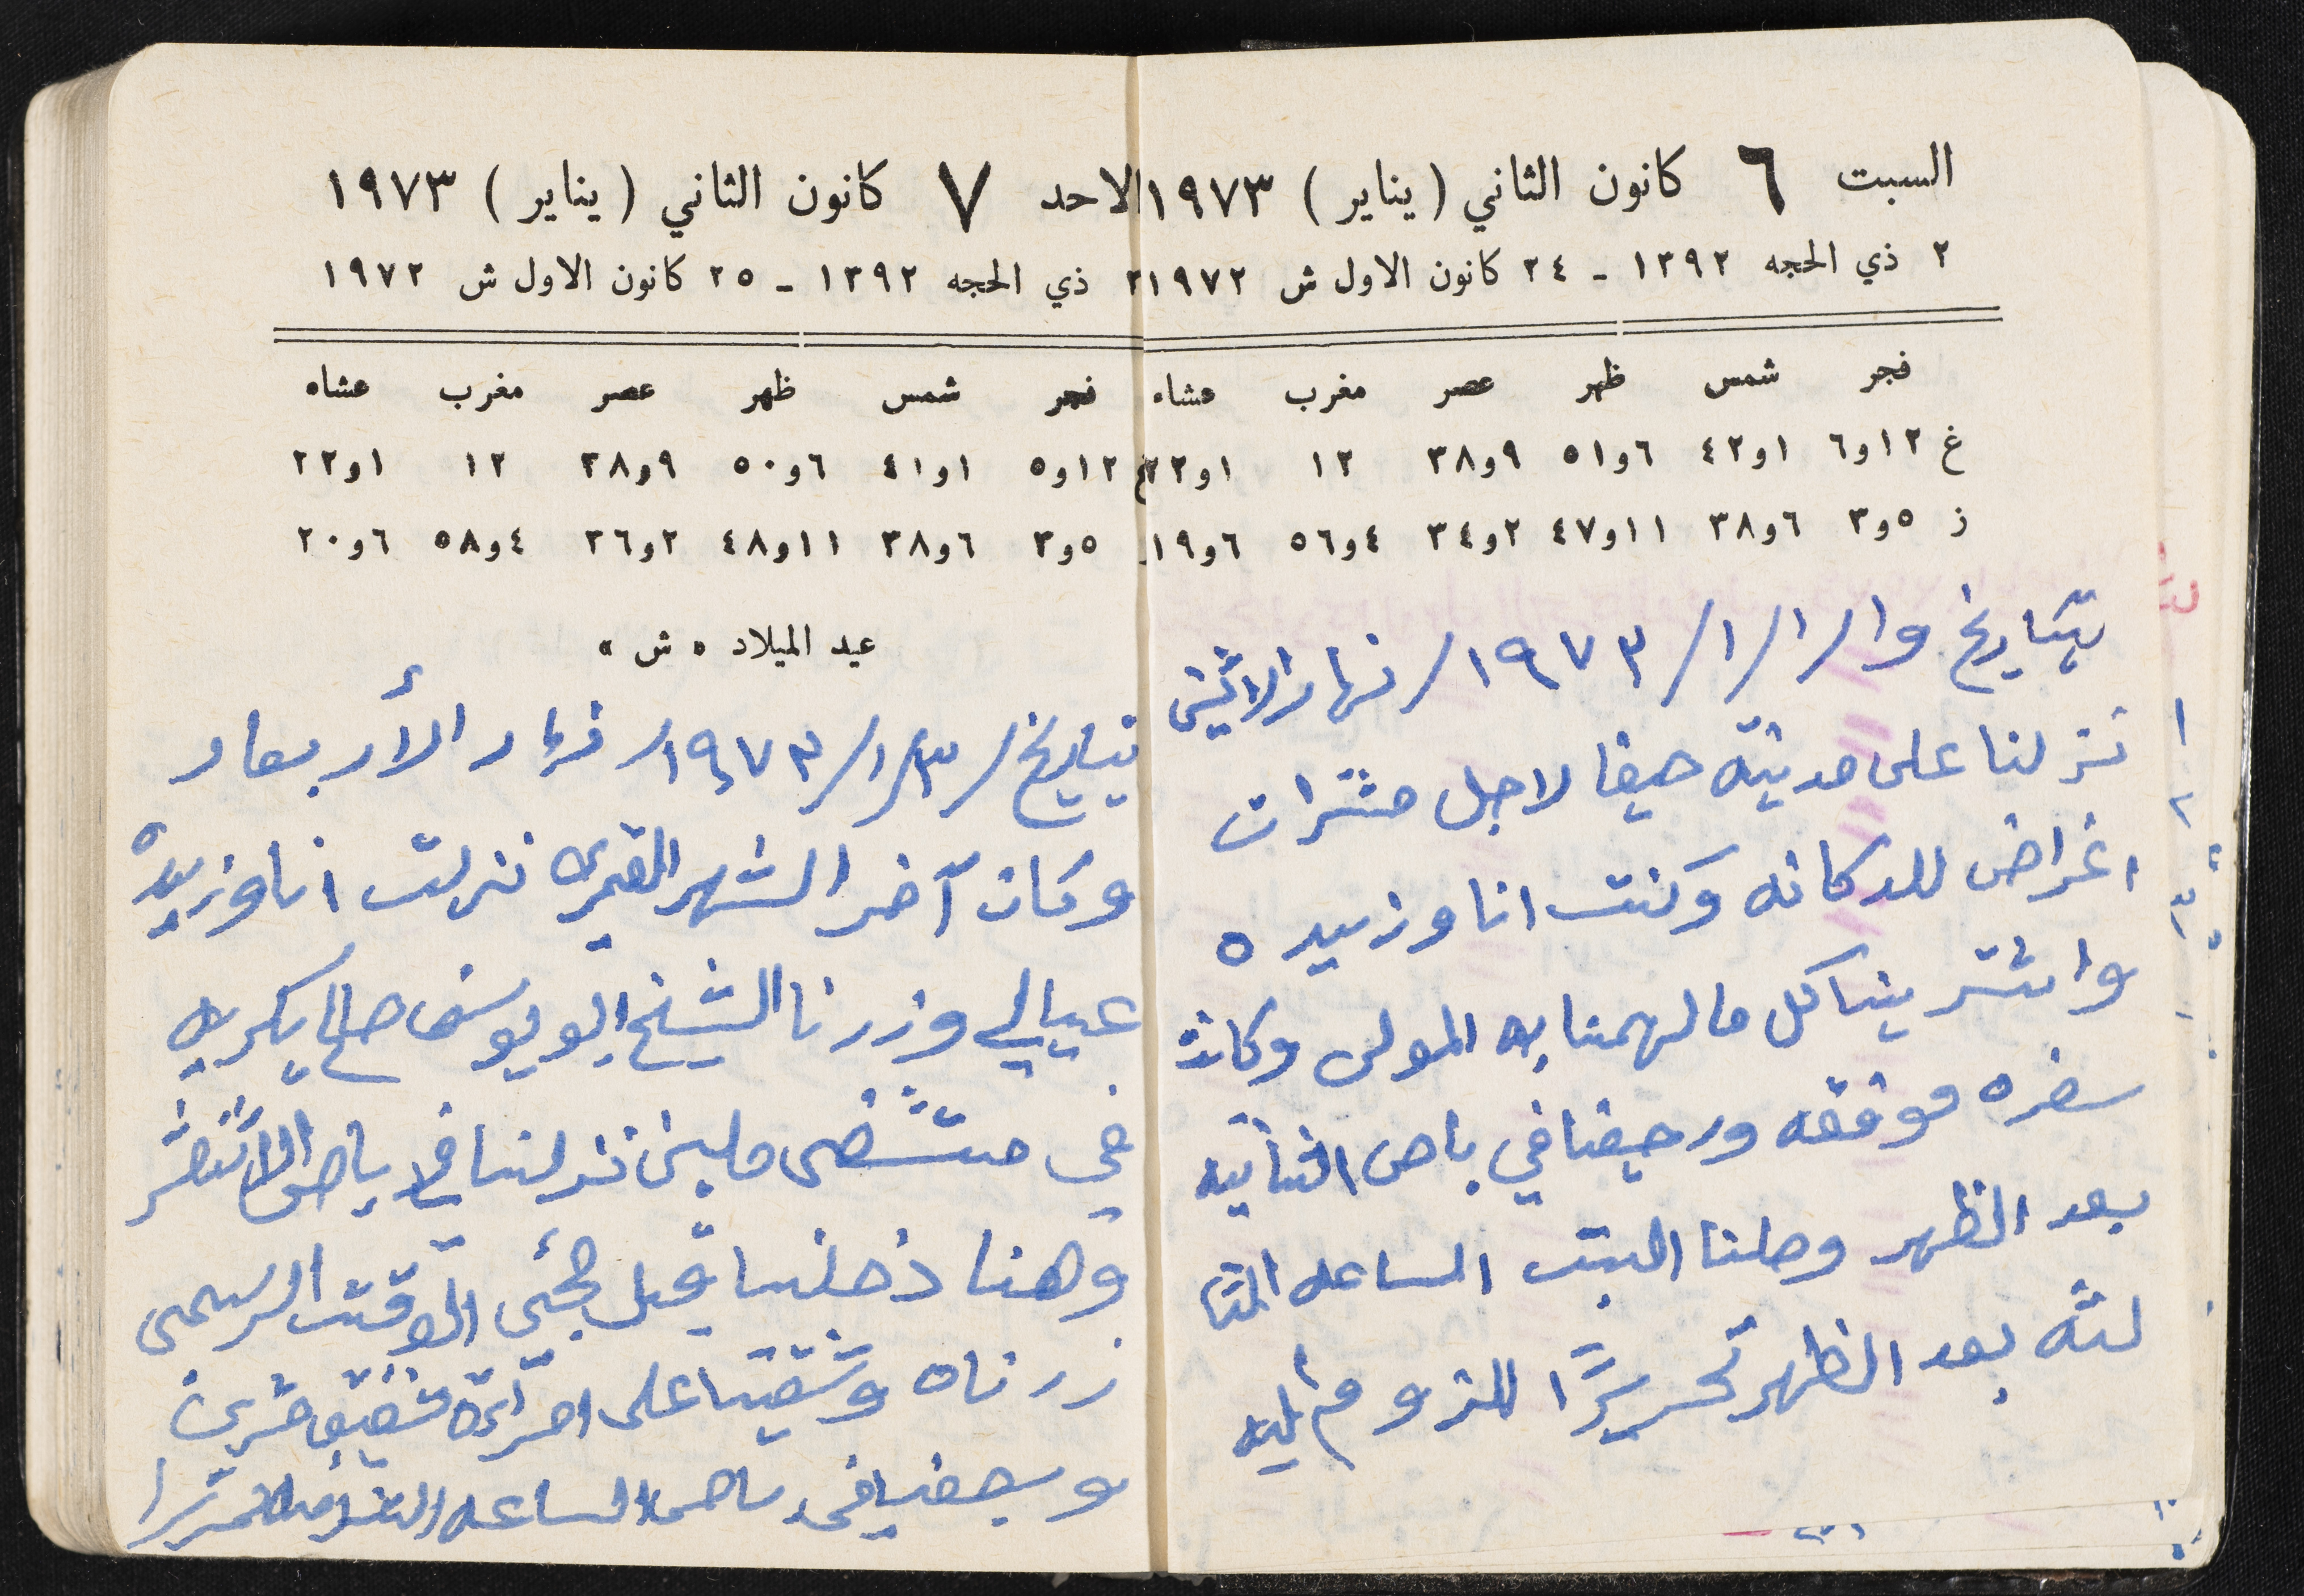 السبت ٦ كانون الثاني (يناير) ١٩٧٣
٢ ذي الحجه ١٣٩٢ ـ ٢٤ كانون الاول ش ١٩٧٢
فجر شمس ظهر عصر مغرب عشاه
غ ١٢و٦ ١و٤٢ ٦و٥١ ٩و٣٨ ١٢ ١و٢٢
ز ٥و٣ ٦و٣٨ ١١و٤٧ ٢و٣٤ ٤و٥٦ ٦و١٩
بتاريخ وا/١/١/١٩٧٣/ نهار الاثنين
نزلنا على مدينة حيفا لاجل مشترات
اغراض للدكانه وكنت انا وزبيده
واشترينا كل ما لهمنا به المولى وكانت
سفره موفقه ورجعنا في باص الثانيه
بعد الظهر وصلنا البيت الساعه الثا
لثه بعد الظهر تحريرًا للزوم اليه
الاحد ٧ كانون الثاني (يناير) ١٩٧٣
٣ ذي الحجه ١٣٩٢ ـ ٢٥ كانون الاول ش ١٩٧٢
فجر شمس ظهر عصر مغرب عشاه
غ ١٢و٥ ١و٤١ ٦و٥٠ ٩و٣٨ ١٢ ١و٢٢
٥و٣ ٦و٣٨ ١١و٤٨ ٢و٣٦ ٤و٥٨ ٦و٢٠
عيد الميلاد «ش»
بتاريخ/٣/١/١٩٧٣/ نهار الأربعاء
وكان آخر الشهر القمري نزلت انا وزبيده
عيالي وزرنا الشيخ ابو يوسف صالح
في مستشفى ملبن نزلنا في باص الاثنعشر
وهنا دخلنا قبل مجئي الوقت الرسمى
زرناه وشقينا على امرأة شفيق
ورجعنا في باص الساعه